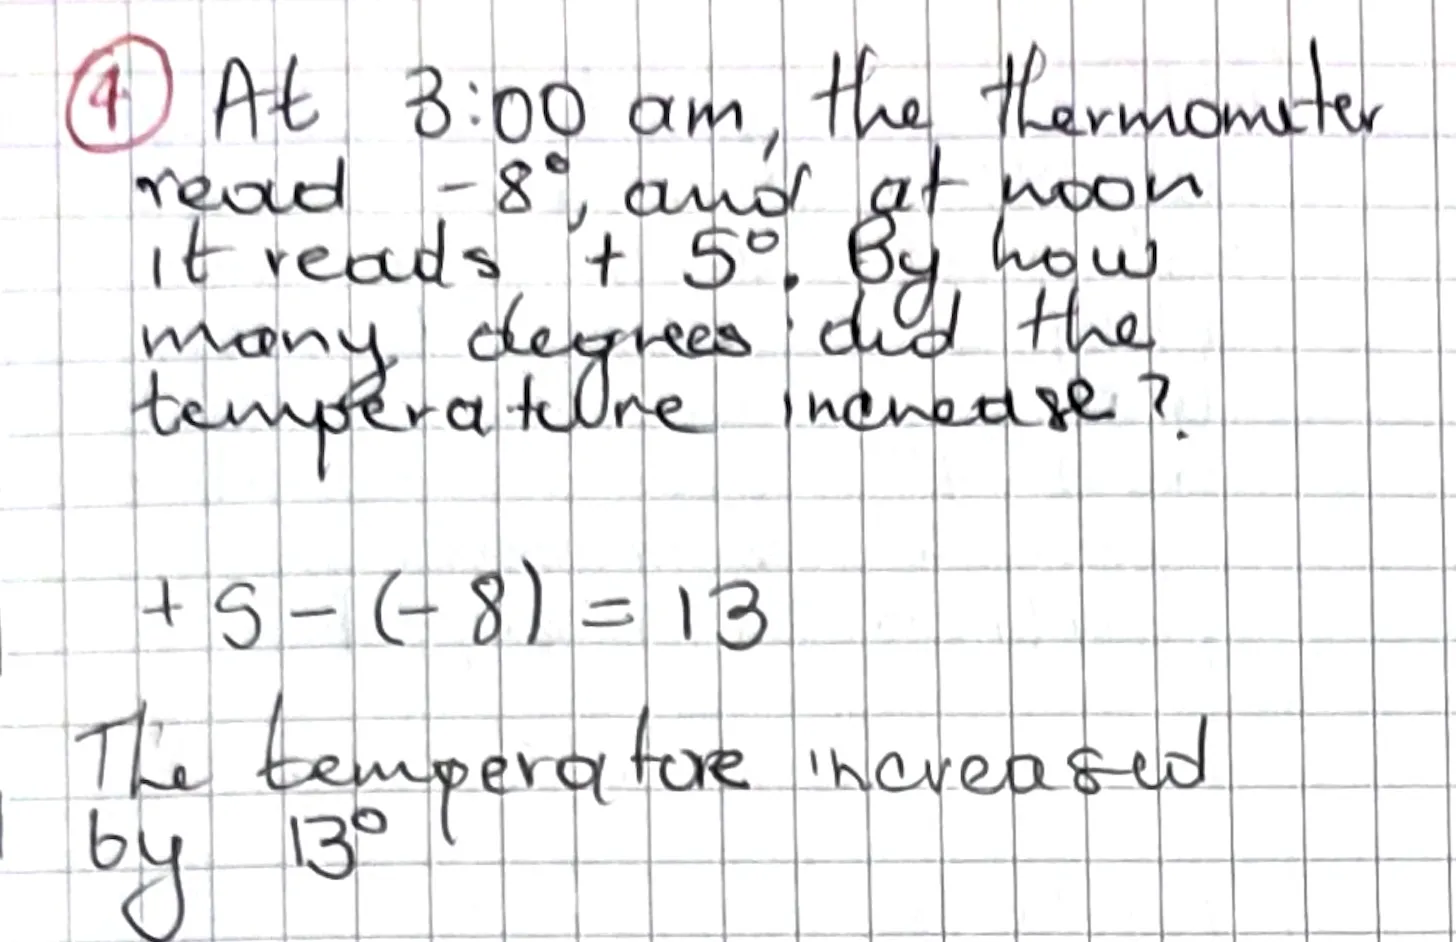 4 At 3:00 am, the thermometer
read -8°, and at noon
it reads + 5°. By how
many degrees did the
temperature increase?
+ 5 - (- 8) = 13
The temperature increased
by 13°